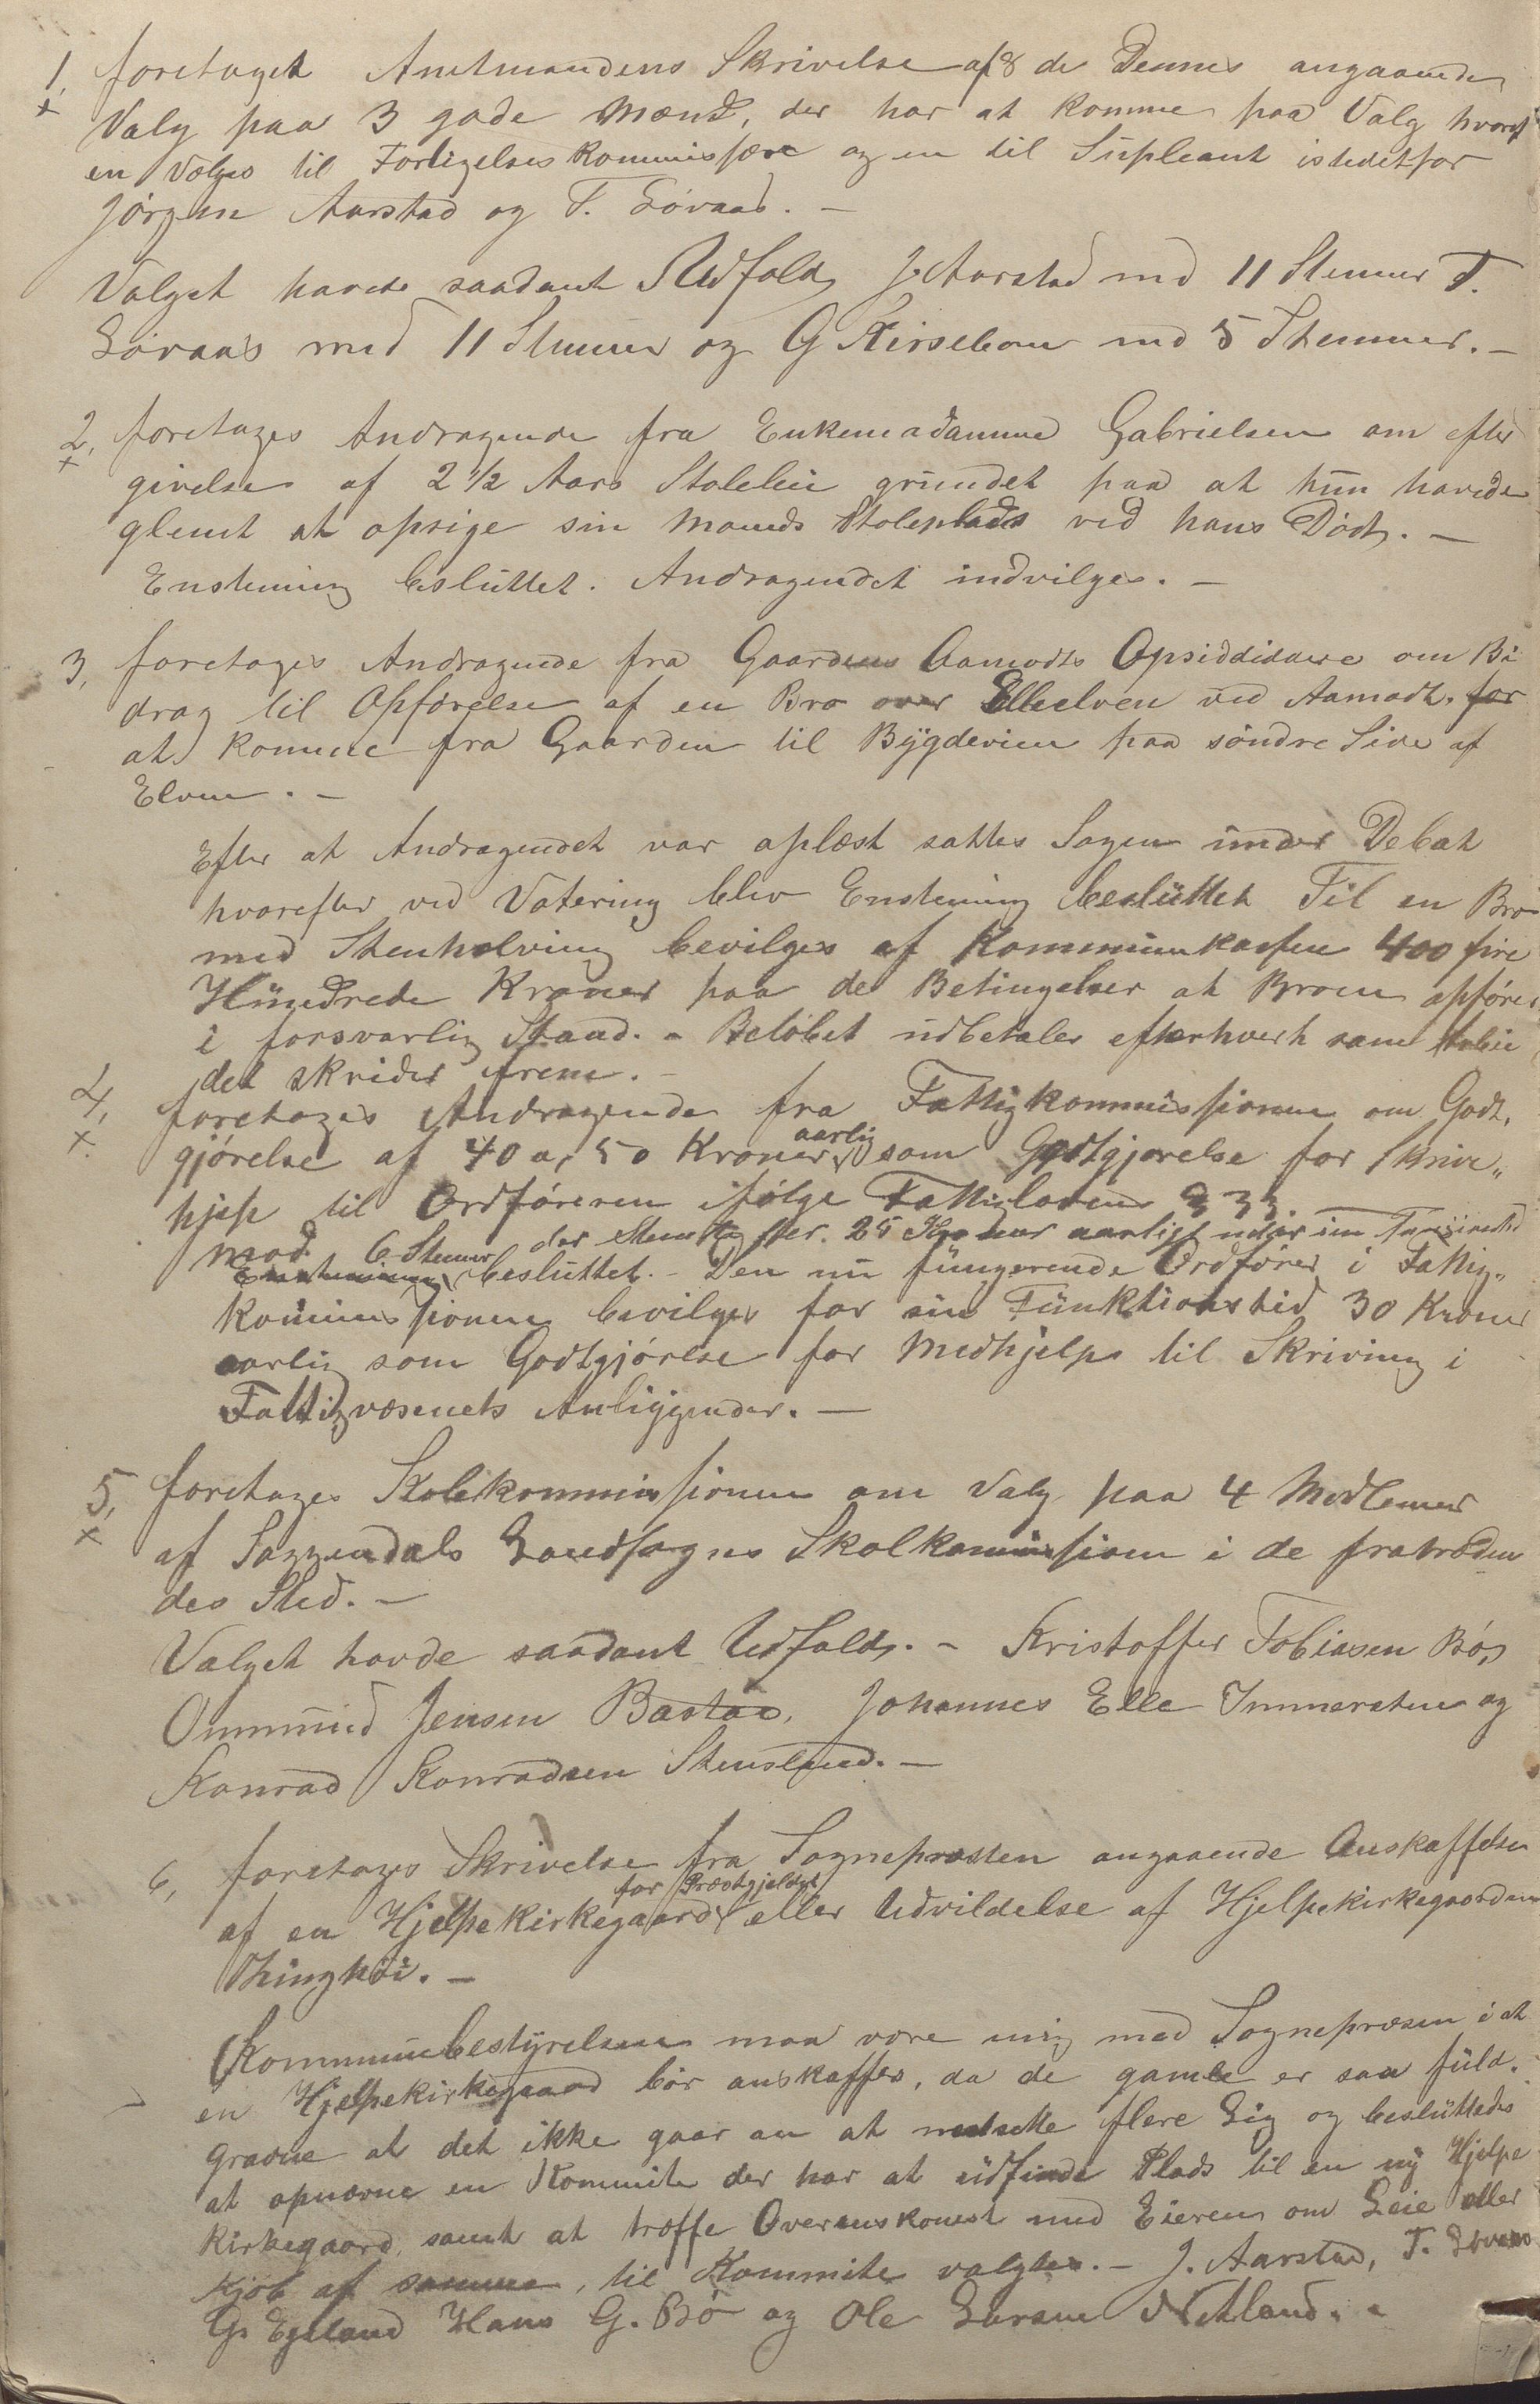 1, foretaget Amtmandens Skrivelse af 8 de Dennes angaaende
+ Valg paa 3 gode Mænd, der har at komme paa Valg hvoraf
en vælges til Forligelses kommissær og en til Supleant istedetfor
Jørgen Aarstad og T. Løvaas. –
Valget havde saadant Udfald, J. Aarstad med 11 Stemmer T.
Løvaas med 11 Stemmer og G Kirsebom med 5 Stemmer. –
2, foretages Andragende fra Enkemadamme Gabrielsen om efter
+ givelse af 2 ½ Aars Stoleleie grundet paa at hun havde
glemt at opsige sin Mands Stoleplads ved hans Død. –
Enstemig besluttet. Andragendet indvilges. –
3, foretages Andragende fra Gaardens Aamodts Opsiddidere om Bi
drag til Opførelse af en Bro over Elleelven ved Aamodt. for
at komme fra Gaarden til Bygdeveien paa søndre Side af
Elven. –
Efter at Andragendet var oplæst sattes Sagen under Debat
hvorefter ved Votering blev Enstemig besluttet Til en Bro
med Stenhvelving bevilges af Kommunekassen 400 fire
Hundrede Kroner paa de Betingelser at Broen opføres
i forsvarlig Stand. – Beløbet udbetales efterhvert som Arbei
det skrider frem. –
4, foretages Andragende fra Fattigkommissionen om Godt,
+ gjørelse af 40 a, 50 Kroner aarlig som Godtgjørelse for Skrive„
hjelp til Ordføreren ifølge Fattigloven § 33.
mod 6 Stemer der stemte for 25 Kroner aarligt
Enstemmig besluttet. – Den nu fungerende Ordfører i Fattig„
kommissionen bevilges for sin Funktionstid 30 Kroner
aarlig som Godtgjørelse for Medhjelp til Skriving i
Fattigvæsenets Anliggender. –
5, foretages Skolekommissionen om Valg paa 4 Medlemer
+ af Soggendals Landsogns Skolkommission i de fratræden
des Sted. –
Valget havde saadant Udfald. – Kristoffer Tobiasen Bø,
Ommund Jensen Bastad, Johannes Elle Immerstein og
Konrad Konradsen Stensland. –
6, foretages Skrivelse fra Sognepræsten angaaende Anskaffelse
af en Hjelpekirkegaard for Præstgjeldet eller Udvildelse af Hjelpekirkegaarden
Thinghøi. –
Kommunebestyrelsen maa være enig med Sognepræsen i at
en Hjelpekirkegaard bør anskaffes, da de gamle er saa fuld.
gravne at det ikke gaar an at nedsætte flere Lig og besluttedes
at opnævne en Kommite der har at udfinde Plads til en ny Hjelpe
kirkegaard, samt at træffe Overenskomst med Eieren om Leie eller
Kjøb af samme, til Kommite valgtes. – J. Aarstad, T. Løvaas
G. Egeland Hans G. Bø og Ole Larsen Netland. –